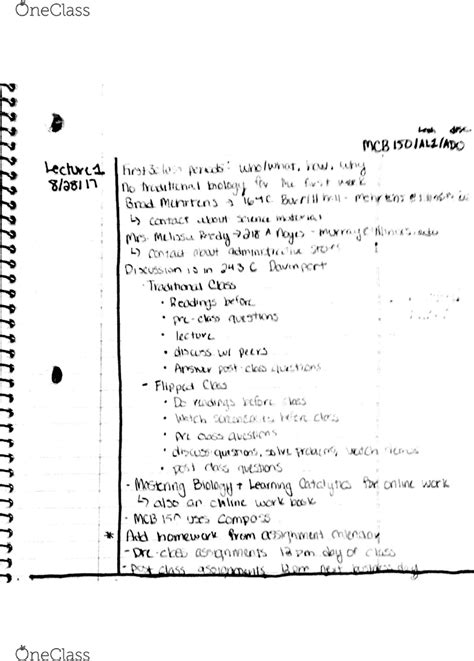 OneClass
MCB 150/AL1/ADO
Lecture 1
8/28/17
First 3 class periods: who/what, how, why
No traditional biology for the first week
Brad Mehrtens → Burrill hall - mehrtens
↳ contact about science material
Mrs. Melissa Reedy → 218 A Noyes -
↳ contact about administrative stuff
Discussion is in 243 C Davenport
· Traditional Class
• Readings before
• pre-class questions
• lecture
• discuss w/ peers
• Answer post-class questions
- Flipped Class
• Do readings before class
• Watch screencasts before class
• pre class questions
• discuss questions, solve problems, watch demos
• post class questions
- Mastering Biology + Learning Catalytics for online work
↳ also an online work book
- MCB 150 uses Compass
* Add homework from assignment calendar
- Pre-class assignments 12 pm day of class
- Post class assignments next business day
OneClass